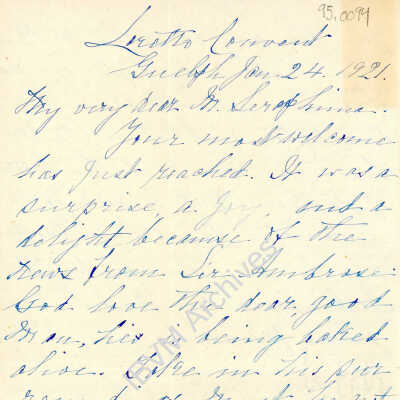 95.0094
Loretto Convent
Guelph Jan. 24. 1921.
My very dear M. Seraphina.
Your most welcome
has just reached. It was a
surprise, a joy and a
delight because of the
news from Sir Ambrose.
God love the dear good
Man, he's being baked
alive. Like in his pur
IBVM Archives